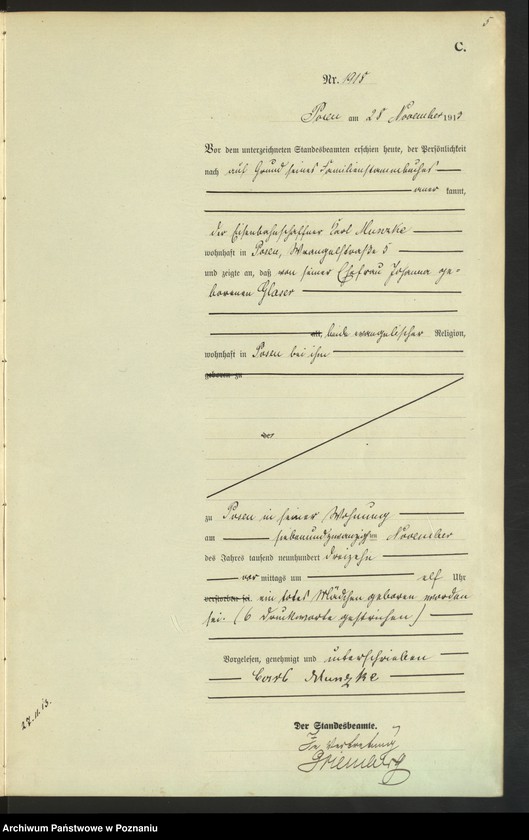 5
C.
Nr. 1915
Posen am 28 November 1913
Vor dem unterzeichneten Standesbeamten erschien heute, der Persönlichkeit
nach auf Grund seines Familienstammbuches
aner kannt,
der Eisenbahnschaffner Karl Munzke
wohnhaft in Posen, Wrangelstraße 5
und zeigte an, daß von seiner Ehefrau Johanna ge-
borenen Glaser
alt, beide evangelischer Religion,
wohnhaft in Posen bei ihm
geboren zu
zu Posen in seiner Wohnung
am siebenundzwanzigsten November
des Jahres tausend neunhundert dreizehn
vor mittags um elf Uhr
verstorben sei. ein totes Mädchen geboren worden
sei. (6 Druckworte gestrichen)
Vorgelesen, genehmigt und unterschrieben
Carl Munzke
27.11.13.
Der Standesbeamte.
In Vertretung